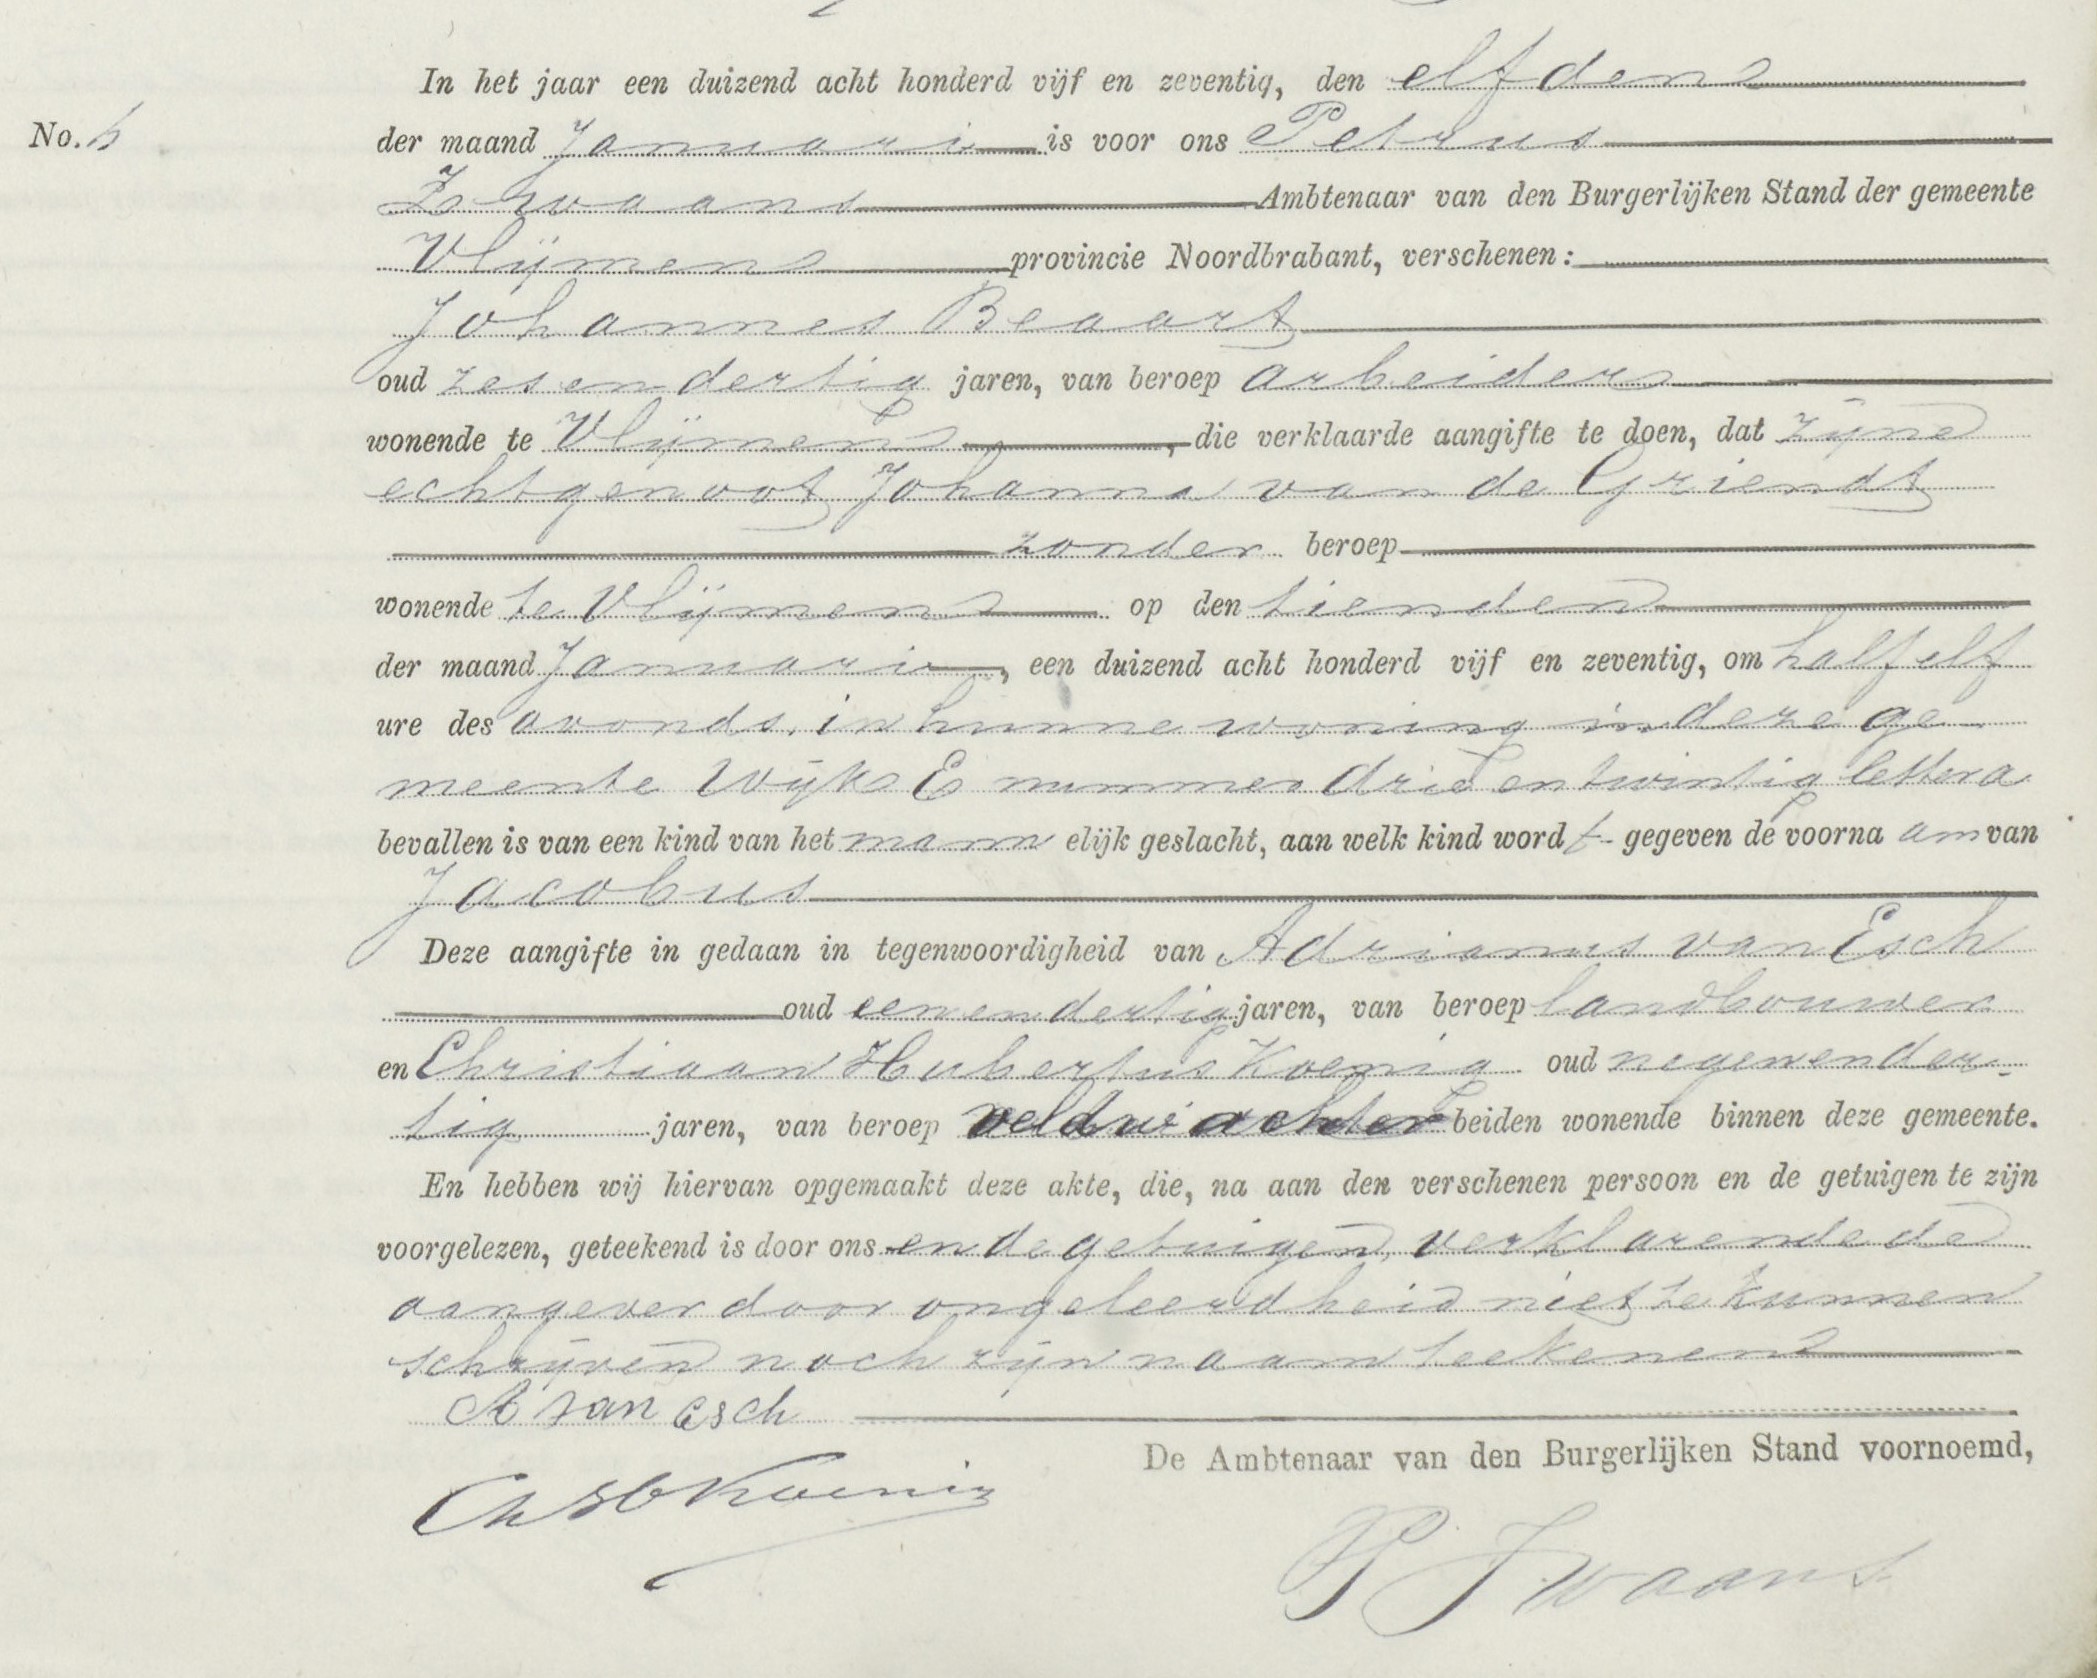 In het jaar een duizend acht honderd vijf en zeventig, den elfden
No. 5 der maand Januari is voor ons Petrus
Zwaans Ambtenaar van den Burgerlijken Stand der gemeente
Vlijmen provincie Noordbrabant, verschenen:
Johannes Beaart
oud zesendertig jaren, van beroep arbeider
wonende te Vlijmen, die verklaarde aangifte te doen, dat zijne
echtgenoot Johanna van de Griendt
zonder beroep
wonende te Vlijmen op den tienden
der maand Januari, een duizend acht honderd vijf en zeventig, om half elf
ure des avonds, in hunne woning in deze ge
meente Wijk E nummer drie en twintig letter a
bevallen is van een kind van het mann elijk geslacht, aan welk kind word t gegeven de voorna am van
Jacobus
Deze aangifte in gedaan in tegenwoordigheid van Adrianus van Esch
oud eenendertig jaren, van beroep landbouwer
en Christiaan Hubertus Koenig oud negenender-
tig jaren, van beroep veldwachter beiden wonende binnen deze gemeente.
En hebben wij hiervan opgemaakt deze akte, die, na aan den verschenen persoon en de getuigen te zijn
voorgelezen, geteekend is door ons en de getuigen, verklarende de
aangever door ongeleerdheid niet te kunnen
schrijven noch zijn naam teekenen
A van Esch
De Ambtenaar van den Burgerlijken Stand voornoemd,
Ch H Koenig
P Zwaans